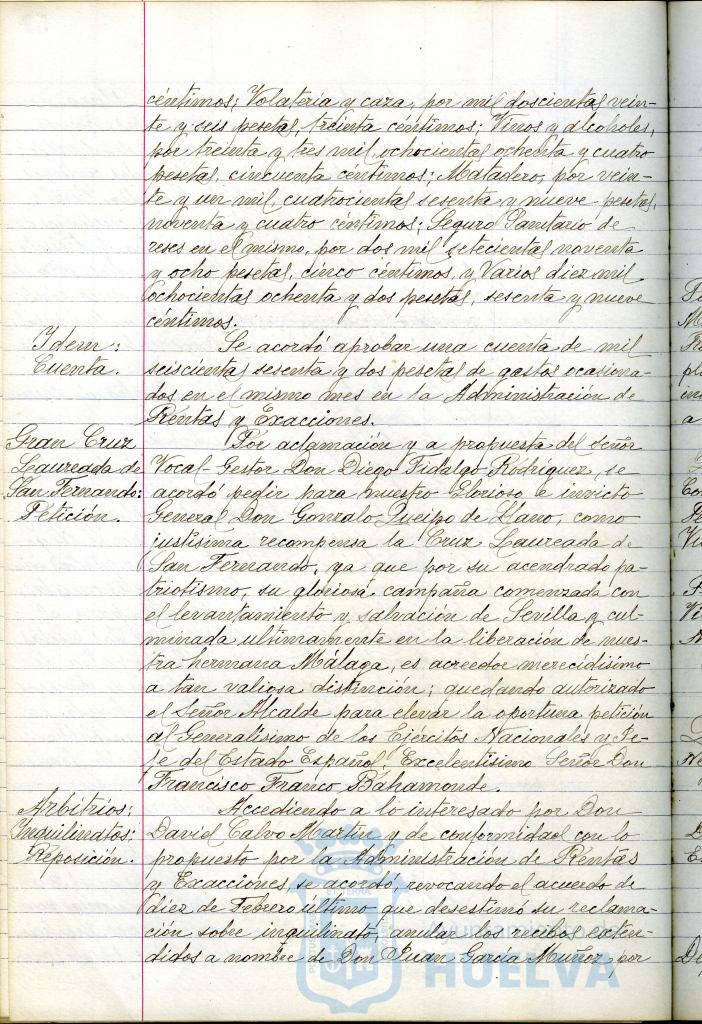 céntimos; Volatería y caza, por mil doscientas vein-
te y seis pesetas, treinta céntimos; Vinos y alcoholes,
por treinta y tres mil, ochocientas ochenta y cuatro
pesetas, cincuenta céntimos; Matadero, por vein-
te y un mil, cuatrocientas sesenta y nueve pesetas,
noventa y cuatro céntimos; Seguro Sanitario de
reses en el mismo, por dos mil setecientas noventa
y ocho pesetas, cinco céntimos, y Varios diez mil
ochocientas ochenta y dos pesetas, sesenta y nueve
céntimos.
Idem:
Cuenta.
Se acordó aprobar una cuenta de mil
seiscientas sesenta y dos pesetas de gastos ocasiona-
dos en el mismo mes en la Administración de
Rentas y Exacciones.
Gran Cruz
Laureada de
San Fernando:
Petición.
Por aclamación y a propuesta del señor
Vocal-Gestor Don Diego Fidalgo Rodríguez, se
acordó pedir para nuestro Glorioso e invicto
General Don Gonzalo Queipo de Llano, como
justísima recompensa la Cruz Laureada de
San Fernando, ya que por su acendrado pa-
triotismo, su gloriosa campaña comenzada con
el levantamiento y salvación de Sevilla y cul-
minada ultimamente en la liberación de nues-
tra hermana Málaga, es acreedor merecidisimo
a tan valiosa distinción; quedando autorizado
el Señor Alcalde para elevar la oportuna petición
al Generalísimo de los Ejércitos Nacionales y Je-
fe del Estado Español, Excelentísimo Señor Don
Francisco Franco Bahamonde.
Arbitrios:
Inquilinatos:
Reposición.
Accediendo a lo interesado por Don
David Calvo Martín y de conformidad con lo
propuesto por la Administración de Rentas
y Exacciones, se acordó, revocando el acuerdo de
diez de Febrero último que desestimó su reclama-
ción sobre inquilinato, anular los recibos exten-
didos a nombre de Don Juan García Muñoz, por
HUELVA